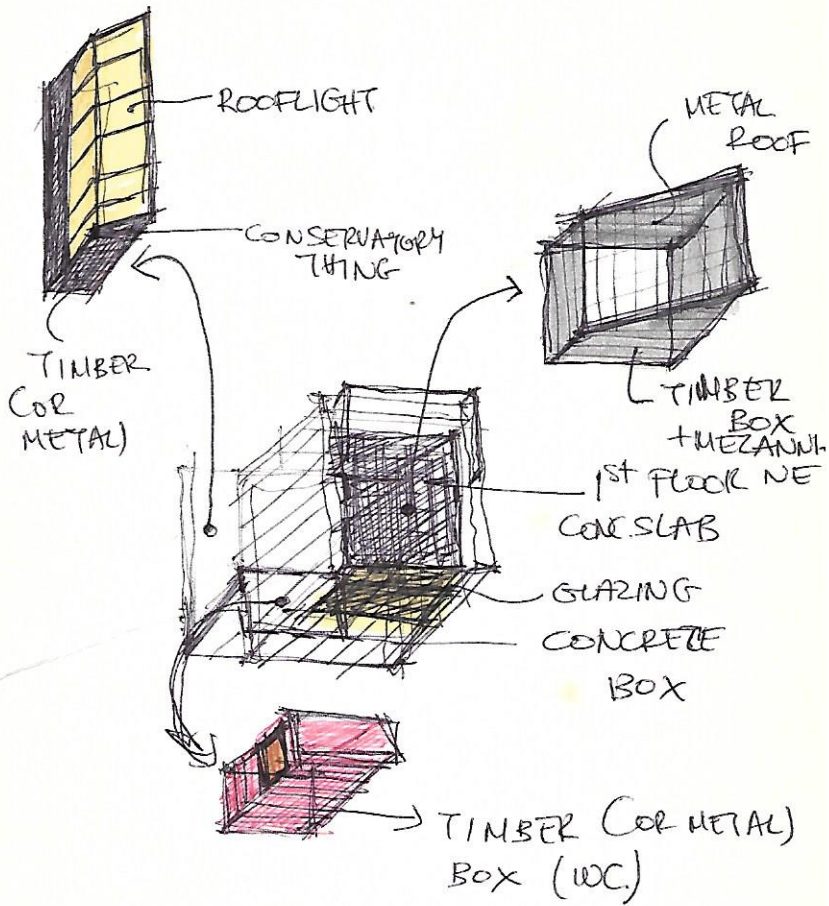 ROOFLIGHT
CONSERVATORY
THING
TIMBER
(OR
METAL)
METAL
ROOF
TIMBER
BOX
+MEZANNI
1st FLOOR NE
CONC.SLAB
GLAZING
CONCRETE
BOX
TIMBER (OR METAL)
BOX (WC.)